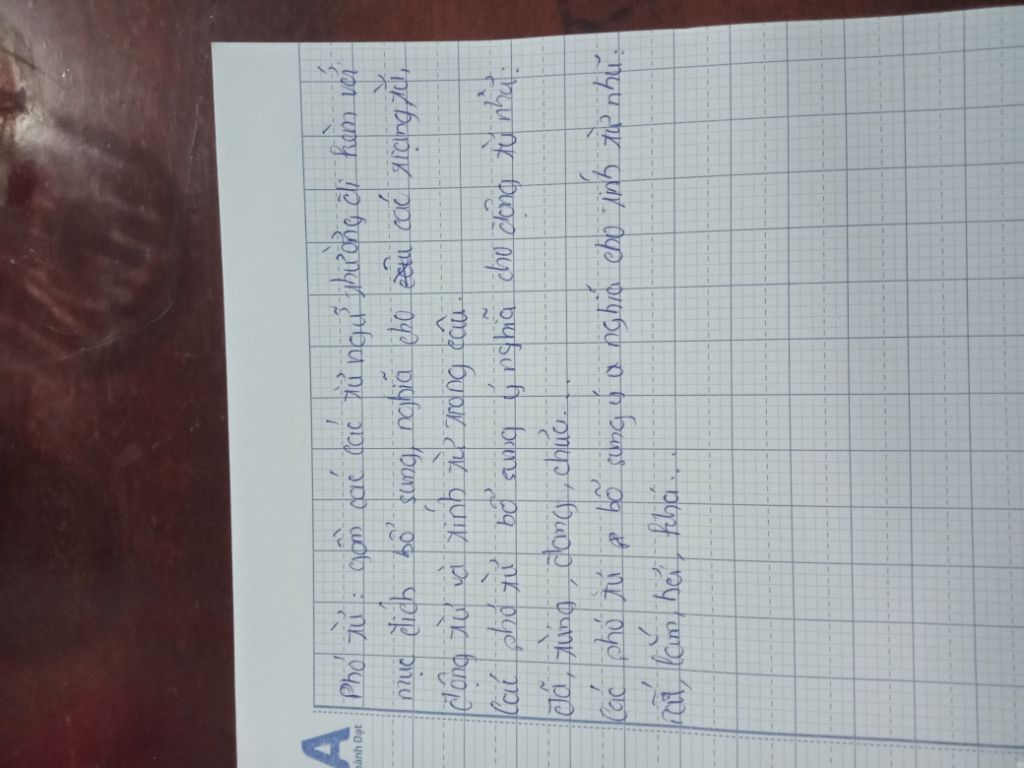 A
hành Đạt
Phó từ: gồm các các từ ngữ thường đi kèm với
mục đích bổ sung, nghĩa cho các trạng từ,
động từ và tính từ trong câu.
Các phó từ bổ sung ý nghĩa cho động từ như:
đã, từng, đang, chưa...
Các phó từ bổ sung ý nghĩa cho tính từ như:
rất, lắm, hơi, khá...